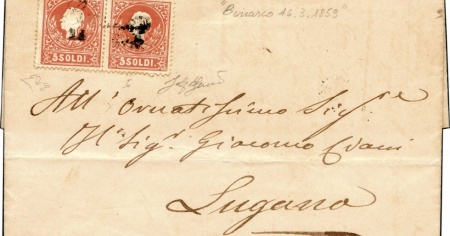 "Binasco 16.3.1859"
5 SOLDI 5 SOLDI
All' Ornatissimo Sig.re
Il Sig.r Giacomo Ciani
Lugano